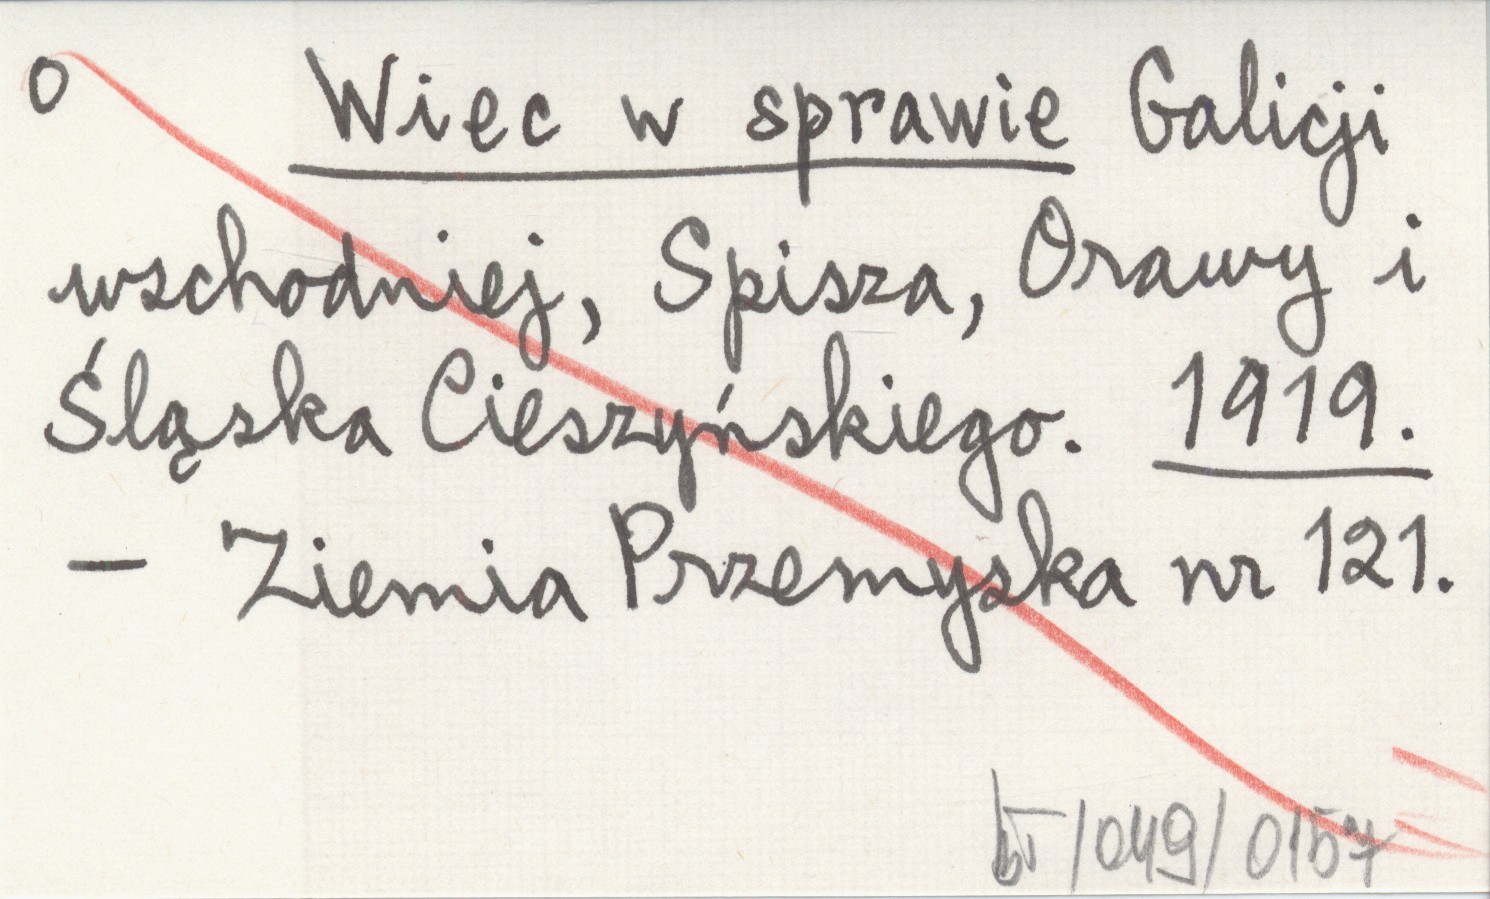 0 Wiec w sprawie Galicji
wschodniej, Spisza, Orawy i
Śląska Cieszyńskiego. 1919.
— Ziemia Przemyska nr 121.
/049/0157